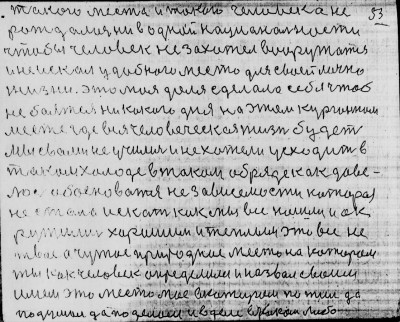 такого места и такого человека не
53
рождалися ни в одной национальности
чтобы человек не захотел вооружатся
и не искал удобного место для своей лично
жизни. это моя доля сделало себя чтоб
не боятся никакого дня на этом курганном
месте где вся человеческая жизнь будет
Мы с вами не учимся и не хотели усходить в
таком холоде в таком обряде как даве-
лося обосноватя независемости каторая
не стала искат как мы все нашли и ок
ружили харошим и теплым это все не
твае а чужое природнае место на катарам
ты как человек определили и назвал своим
имем это место мое в катором по том да
подушили да поделам и в деле